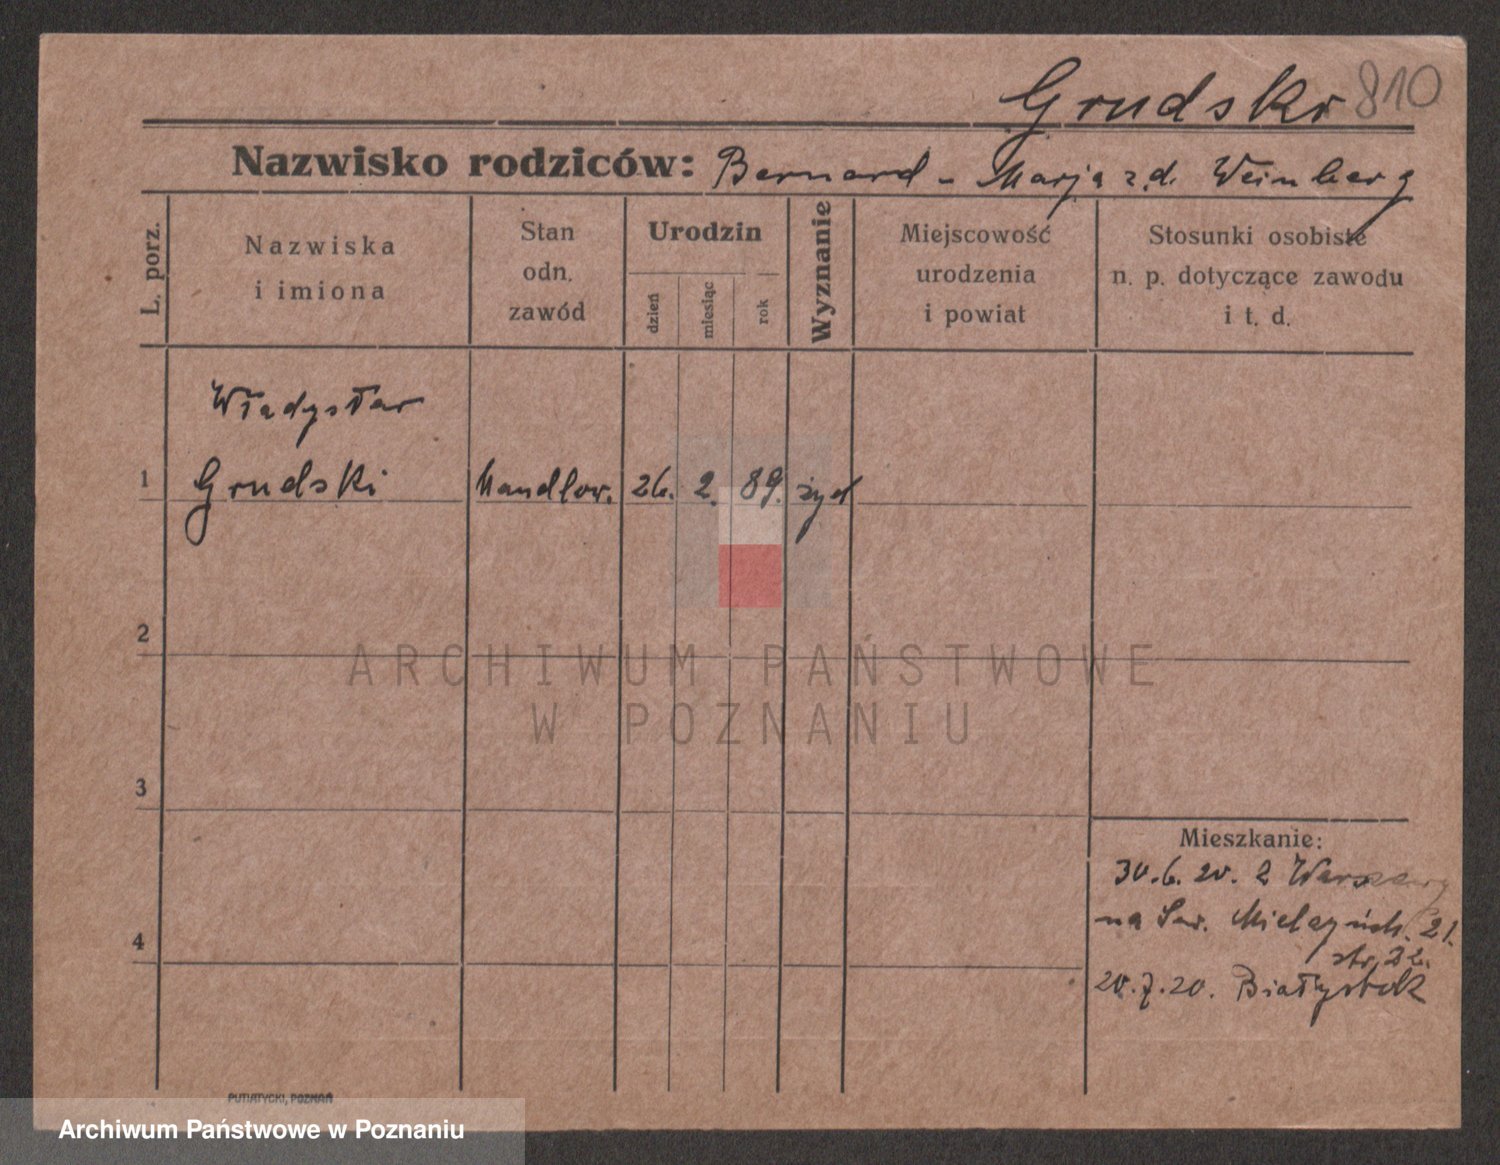 Grudski 810
Nazwisko rodziców: Bernard - Marja z.d. Weinberg
L. porz.
Nazwiska
i imiona
Stan
odn.
zawód
Urodzin
dzień
miesiąc
rok
Wyznanie
Miejscowość
urodzenia
i powiat
Stosunki osobiste
n. p. dotyczące zawodu
i t. d.
Władysław
1 Grudski handlow. 26. 2. 89. żyd
2
ARCHIWUM PAŃSTWOWE
W POZNANIU
3
Mieszkanie:
30.6.20. z Warszawy
na Św. 21.
4
str. 22.
20.7.20. Białystok
PUTIATYCKI, POZNAŃ
Archiwum Państwowe w Poznaniu